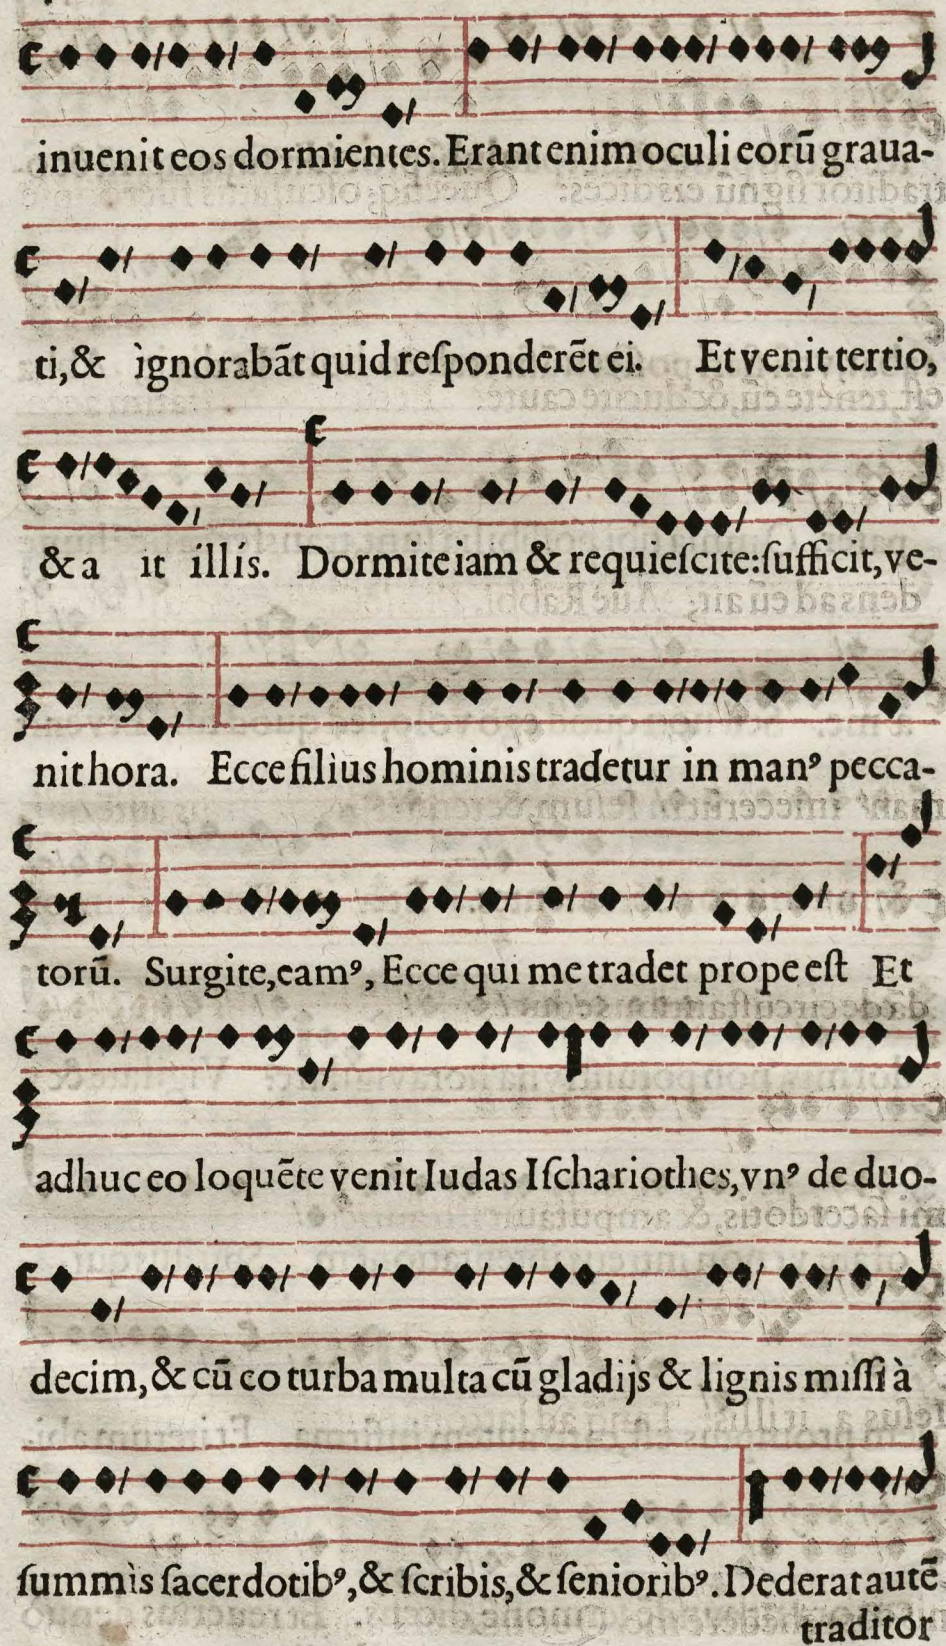 inuenit eos dormientes. Erant enim oculi eorū graua-
ti, & ignorabāt quid reſponderēt ei. Et venit tertio,
& a it illis. Dormite iam & requieſcite: ſufficit, ve-
nit hora. Ecce filius hominis tradetur in manꝰ pecca-
torū. Surgite, eamꝰ, Ecce qui me tradet prope eſt Et
adhuc eo loquēte venit Iudas Iſchariothes, vnꝰ de duo-
decim, & cū eo turba multa cū gladijs & lignis miſſi à
ſummis ſacerdotibꝰ, & ſcribis, & ſenioribꝰ. Dederat autē
traditor